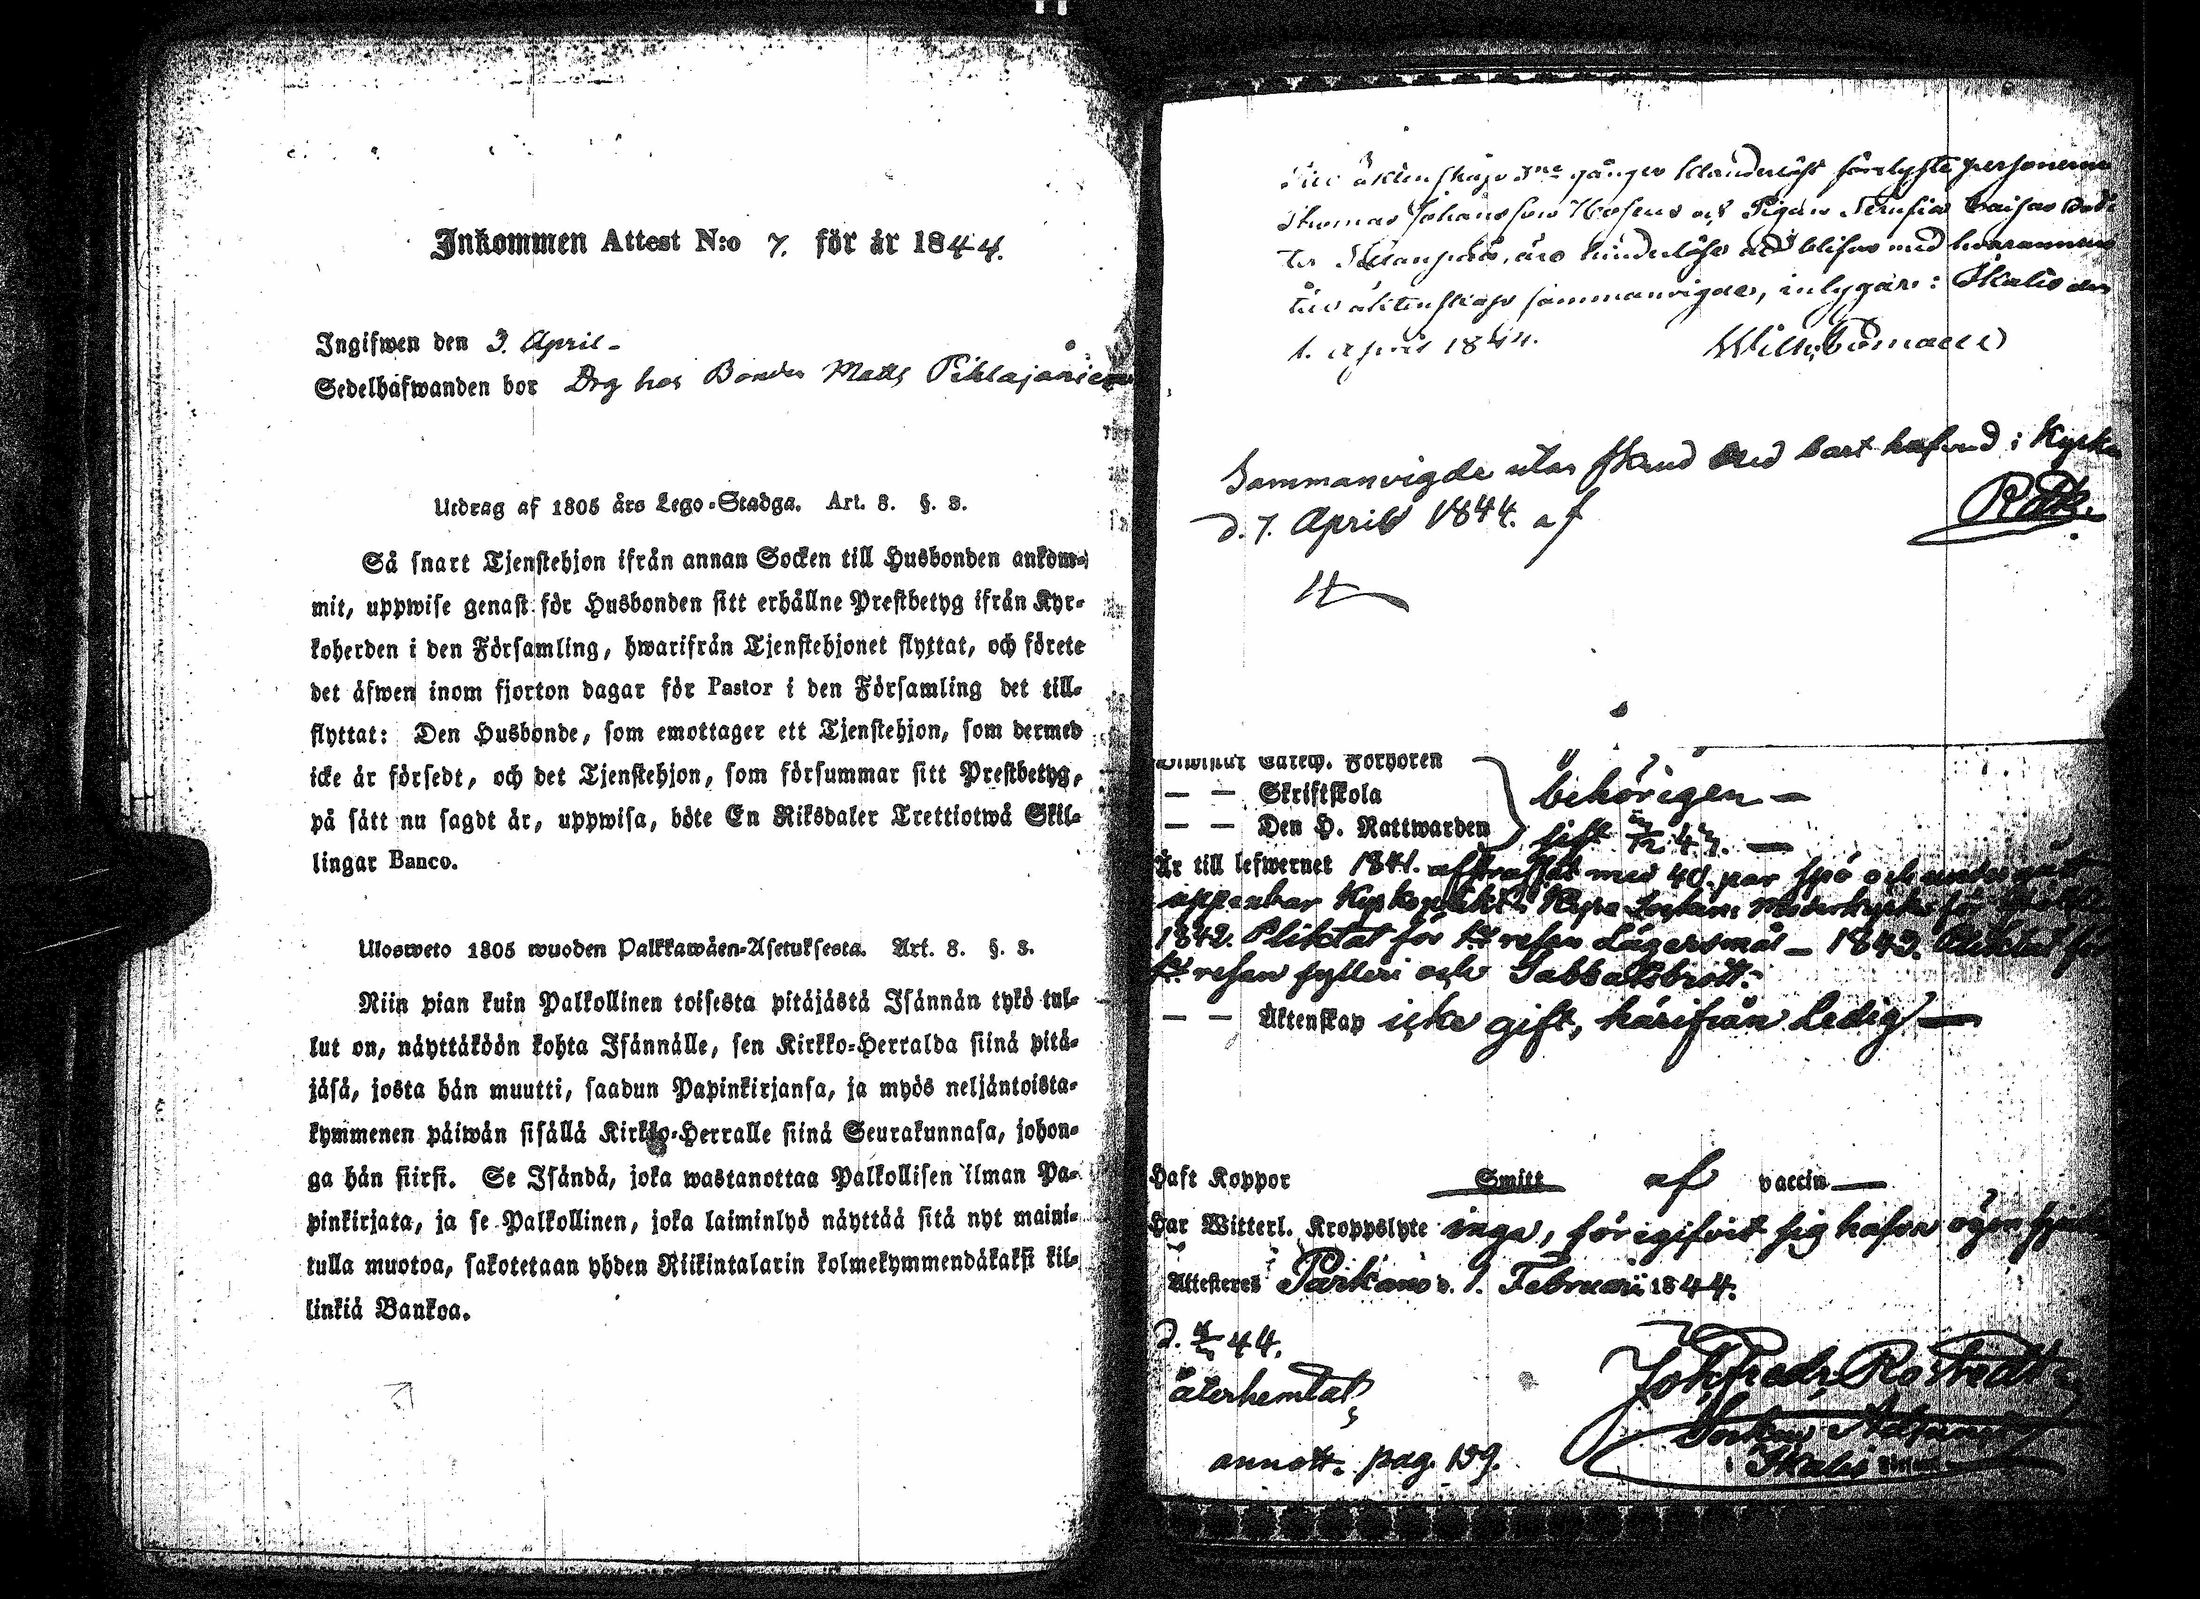 Inkommen Attest N:o 7. för år 1844.
Ingifwen den 3. April -
Sedelhafwanden bor Drg hos Bonden Matts Pihlajaniemi
Utdrag af 1805 års Lego-Stadga. Art. 8. §. 3.
Så snart Tjenstehjon ifrån annan Socken till Husbonden ankom-
mit, uppwise genast för Husbonden sitt erhållne Prestbetyg ifrån Kyr-
koherden i den Församling, hwarifrån Tjenstehjonet flyttat, och förete
det äfwen inom fjorton dagar för Pastor i den Församling det till-
flyttat: Den Husbonde, som emottager ett Tjenstehjon, som dermed
icke är försedt, och det Tjenstehjon, som försummar sitt Prestbetyg,
på sätt nu sagdt är, uppwisa, böte En Riksdaler Trettiotwå Skil-
lingar Banco.
Ulosweto 1805 wuoden Palkkawäen-Asetuksesta. Art. 8. §. 3.
Niin pian kuin Palkollinen toisesta pitäjästä Isännän tykö tul-
lut on, näyttäköön kohta Isännälle, sen Kirkko-Herralda siinä pitä-
jäsä, josta hän muutti, saadun Papinkirjansa, ja myös neljäntoista-
kymmenen päiwän sisällä Kirkko-Herralle siinä Seurakunnasa, johon-
ga hän siirsi. Se Isändä, joka wastanottaa Palkollisen ilman Pa-
pinkirjata, ja se Palkollinen, joka laiminlyö näyttää sitä nyt maini-
tulla muotoa, sakotetaan yhden Riikintalarin kolmekymmendäkaksi kil-
linkiä Bankoa.
till äktenskap 3ne gånger klanderlöst förelyste personerne
Thomas Johansson och Pigan Serafia Caisas
äro hinderlöse att blifva med hvarannan
till äktenskap sammanvigde, intygar: Ikalis den
1. April 1844.
Sammanvigde utan
d. 7. April 1844. af
Catech. Förhören
— — Skriftskola behörigen —
— — Den H. Nattwarden sist
Är till lefwernet 1841. afstraffat med 40. par spö och undergått
uppenbar Kyrkoplikt i
1842. Pliktat för 1a resan Lägersmål — 1843. Pliktat för
1a resan fylleri och Sabbatsbrott.
— — Äktenskap icke gift, härifrån Ledig —
Haft Koppor Smitt af vaccin —
Har Witterl. Kroppslyte inga, föregifvit sig hafva
Attesteres Parkano d. 1. Februari 1844.
återhemtat,
annott. pag. 159.